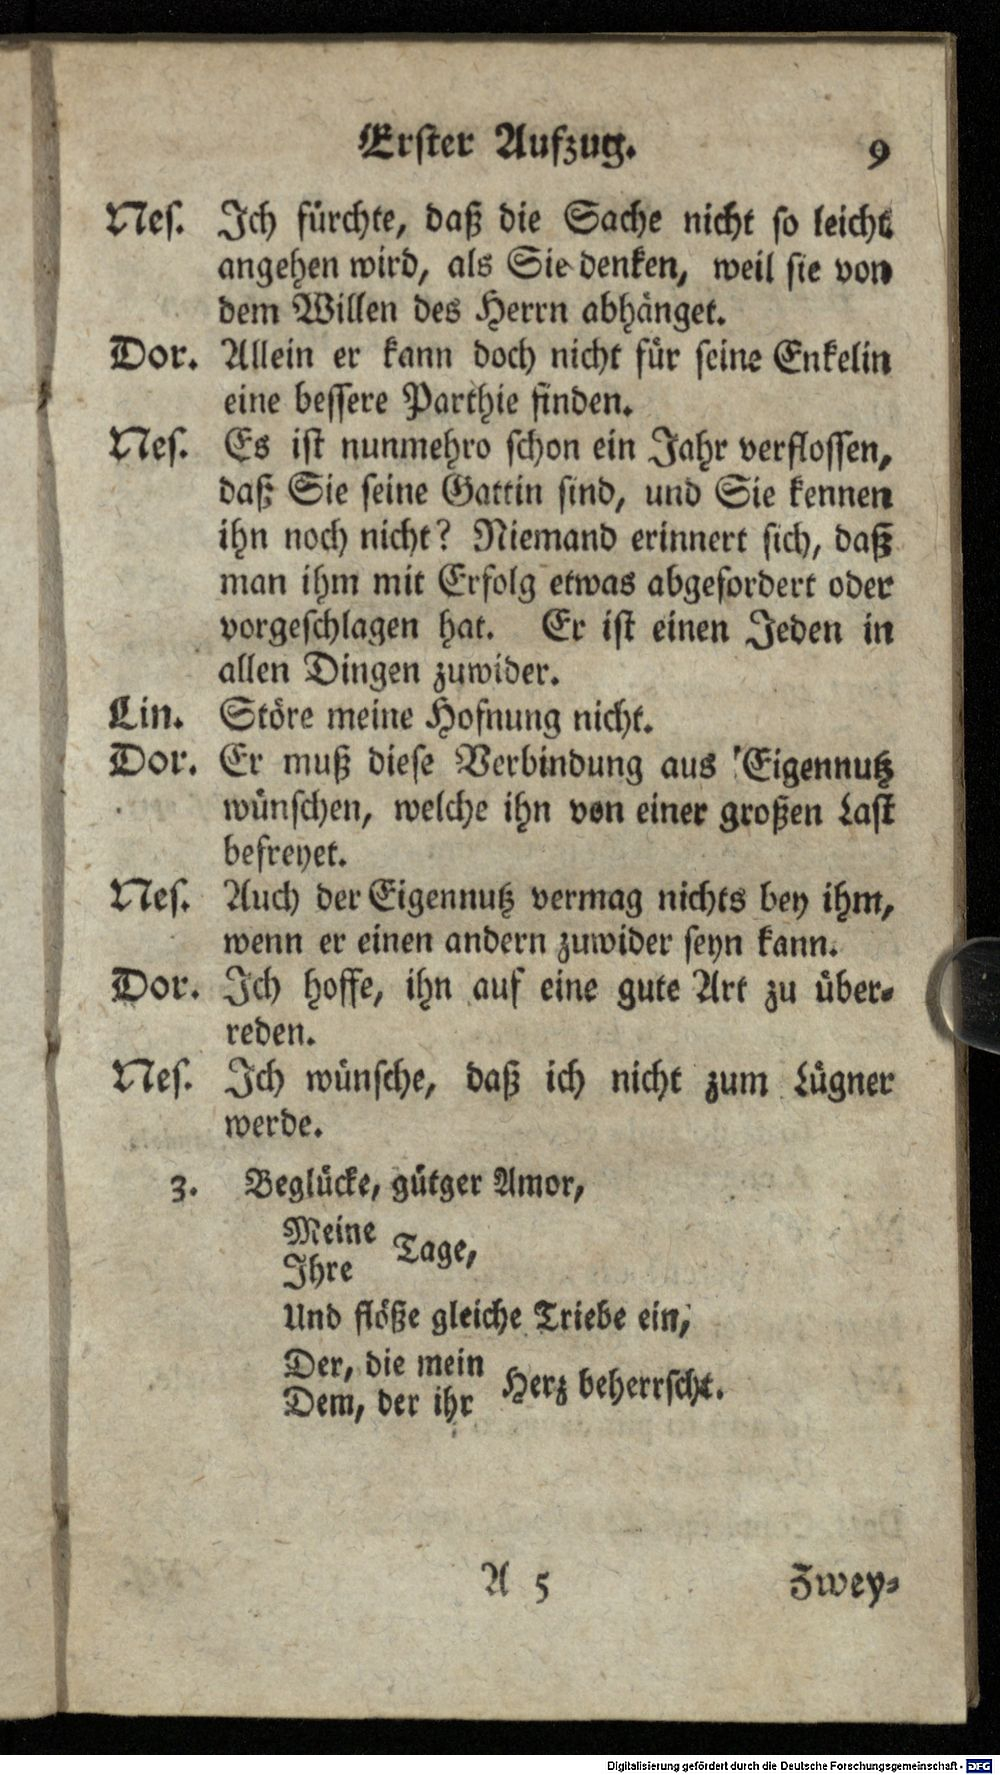 Erster Aufzug. 9
Nes. Ich fürchte, daß die Sache nicht so leicht
angehen wird, als Sie denken, weil sie von
dem Willen des Herrn abhänget.
Dor. Allein er kann doch nicht für seine Enkelin
eine bessere Parthie finden.
Nes. Es ist nunmehro schon ein Jahr verflossen,
daß Sie seine Gattin sind, und Sie kennen
ihn noch nicht? Niemand erinnert sich, daß
man ihm mit Erfolg etwas abgefordert oder
vorgeschlagen hat. Er ist einen Jeden in
allen Dingen zuwider.
Lin. Störe meine Hofnung nicht.
Dor. Er muß diese Verbindung aus Eigennutz
wünschen, welche ihn von einer großen Last
befreyet.
Nes. Auch der Eigennutz vermag nichts bey ihm,
wenn er einen andern zuwider seyn kann.
Dor. Ich hoffe, ihn auf eine gute Art zu über-
reden.
Nes. Ich wünsche, daß ich nicht zum Lügner
werde.
3. Beglücke, gütger Amor,
Meine
Ihre Tage,
Und flöße gleiche Triebe ein,
Der, die mein
Dem, der ihr Herz beherrscht.
A 5 Zwey-
Digitalisierung gefördert durch die Deutsche Forschungsgemeinschaft - DFG